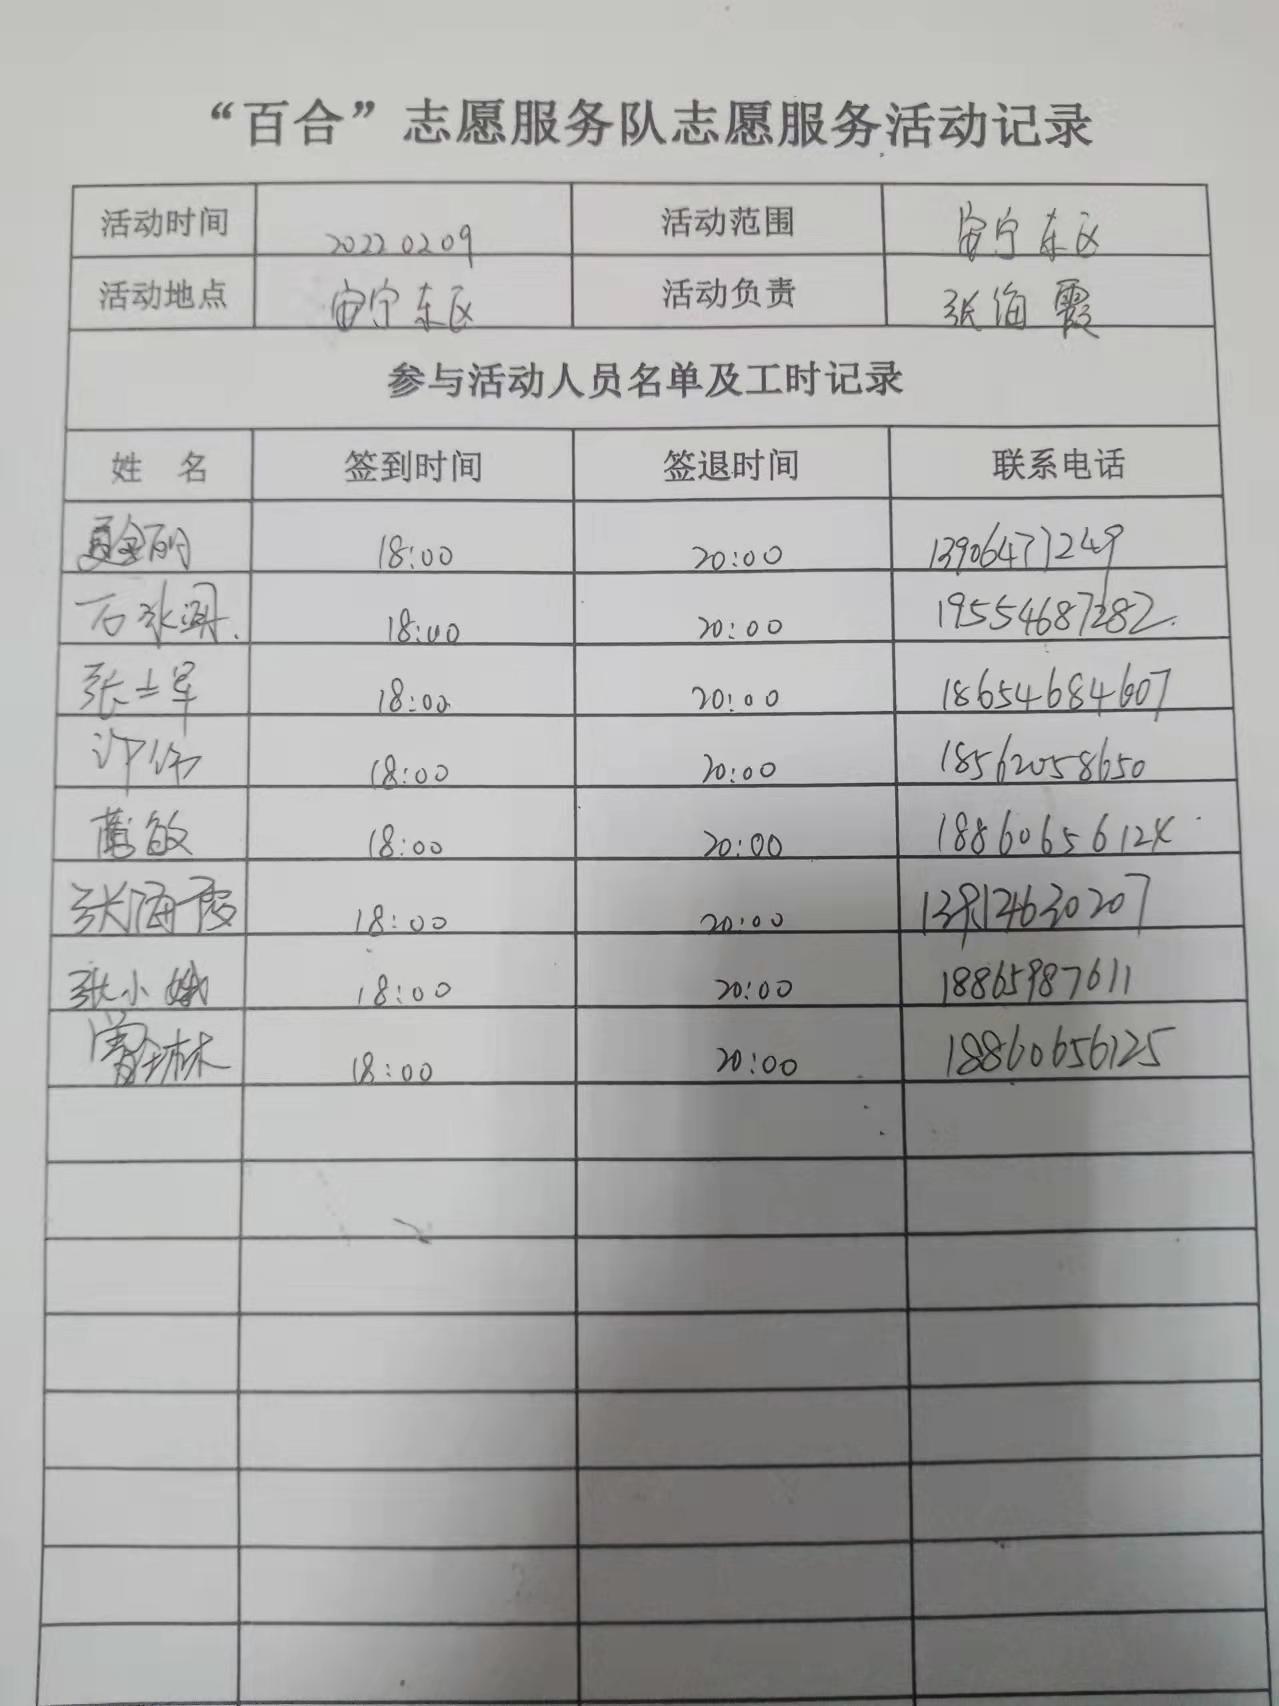 “百合”志愿服务队志愿服务活动记录
活动时间 20220209 活动范围 安宁东区
活动地点 安宁东区 活动负责 张海霞
参与活动人员名单及工时记录
姓 名 签到时间 签退时间 联系电话
18:00 20:00 13906477249
18:00 20:00 19554687282
张士军 18:00 20:00 18654684607
许伟 18:00 20:00 18562058650
敏 18:00 20:00 1886065612X
张海霞 18:00 20:00
张小娥 18:00 20:00 18865987611
曾林 18:00 20:00 18860656125